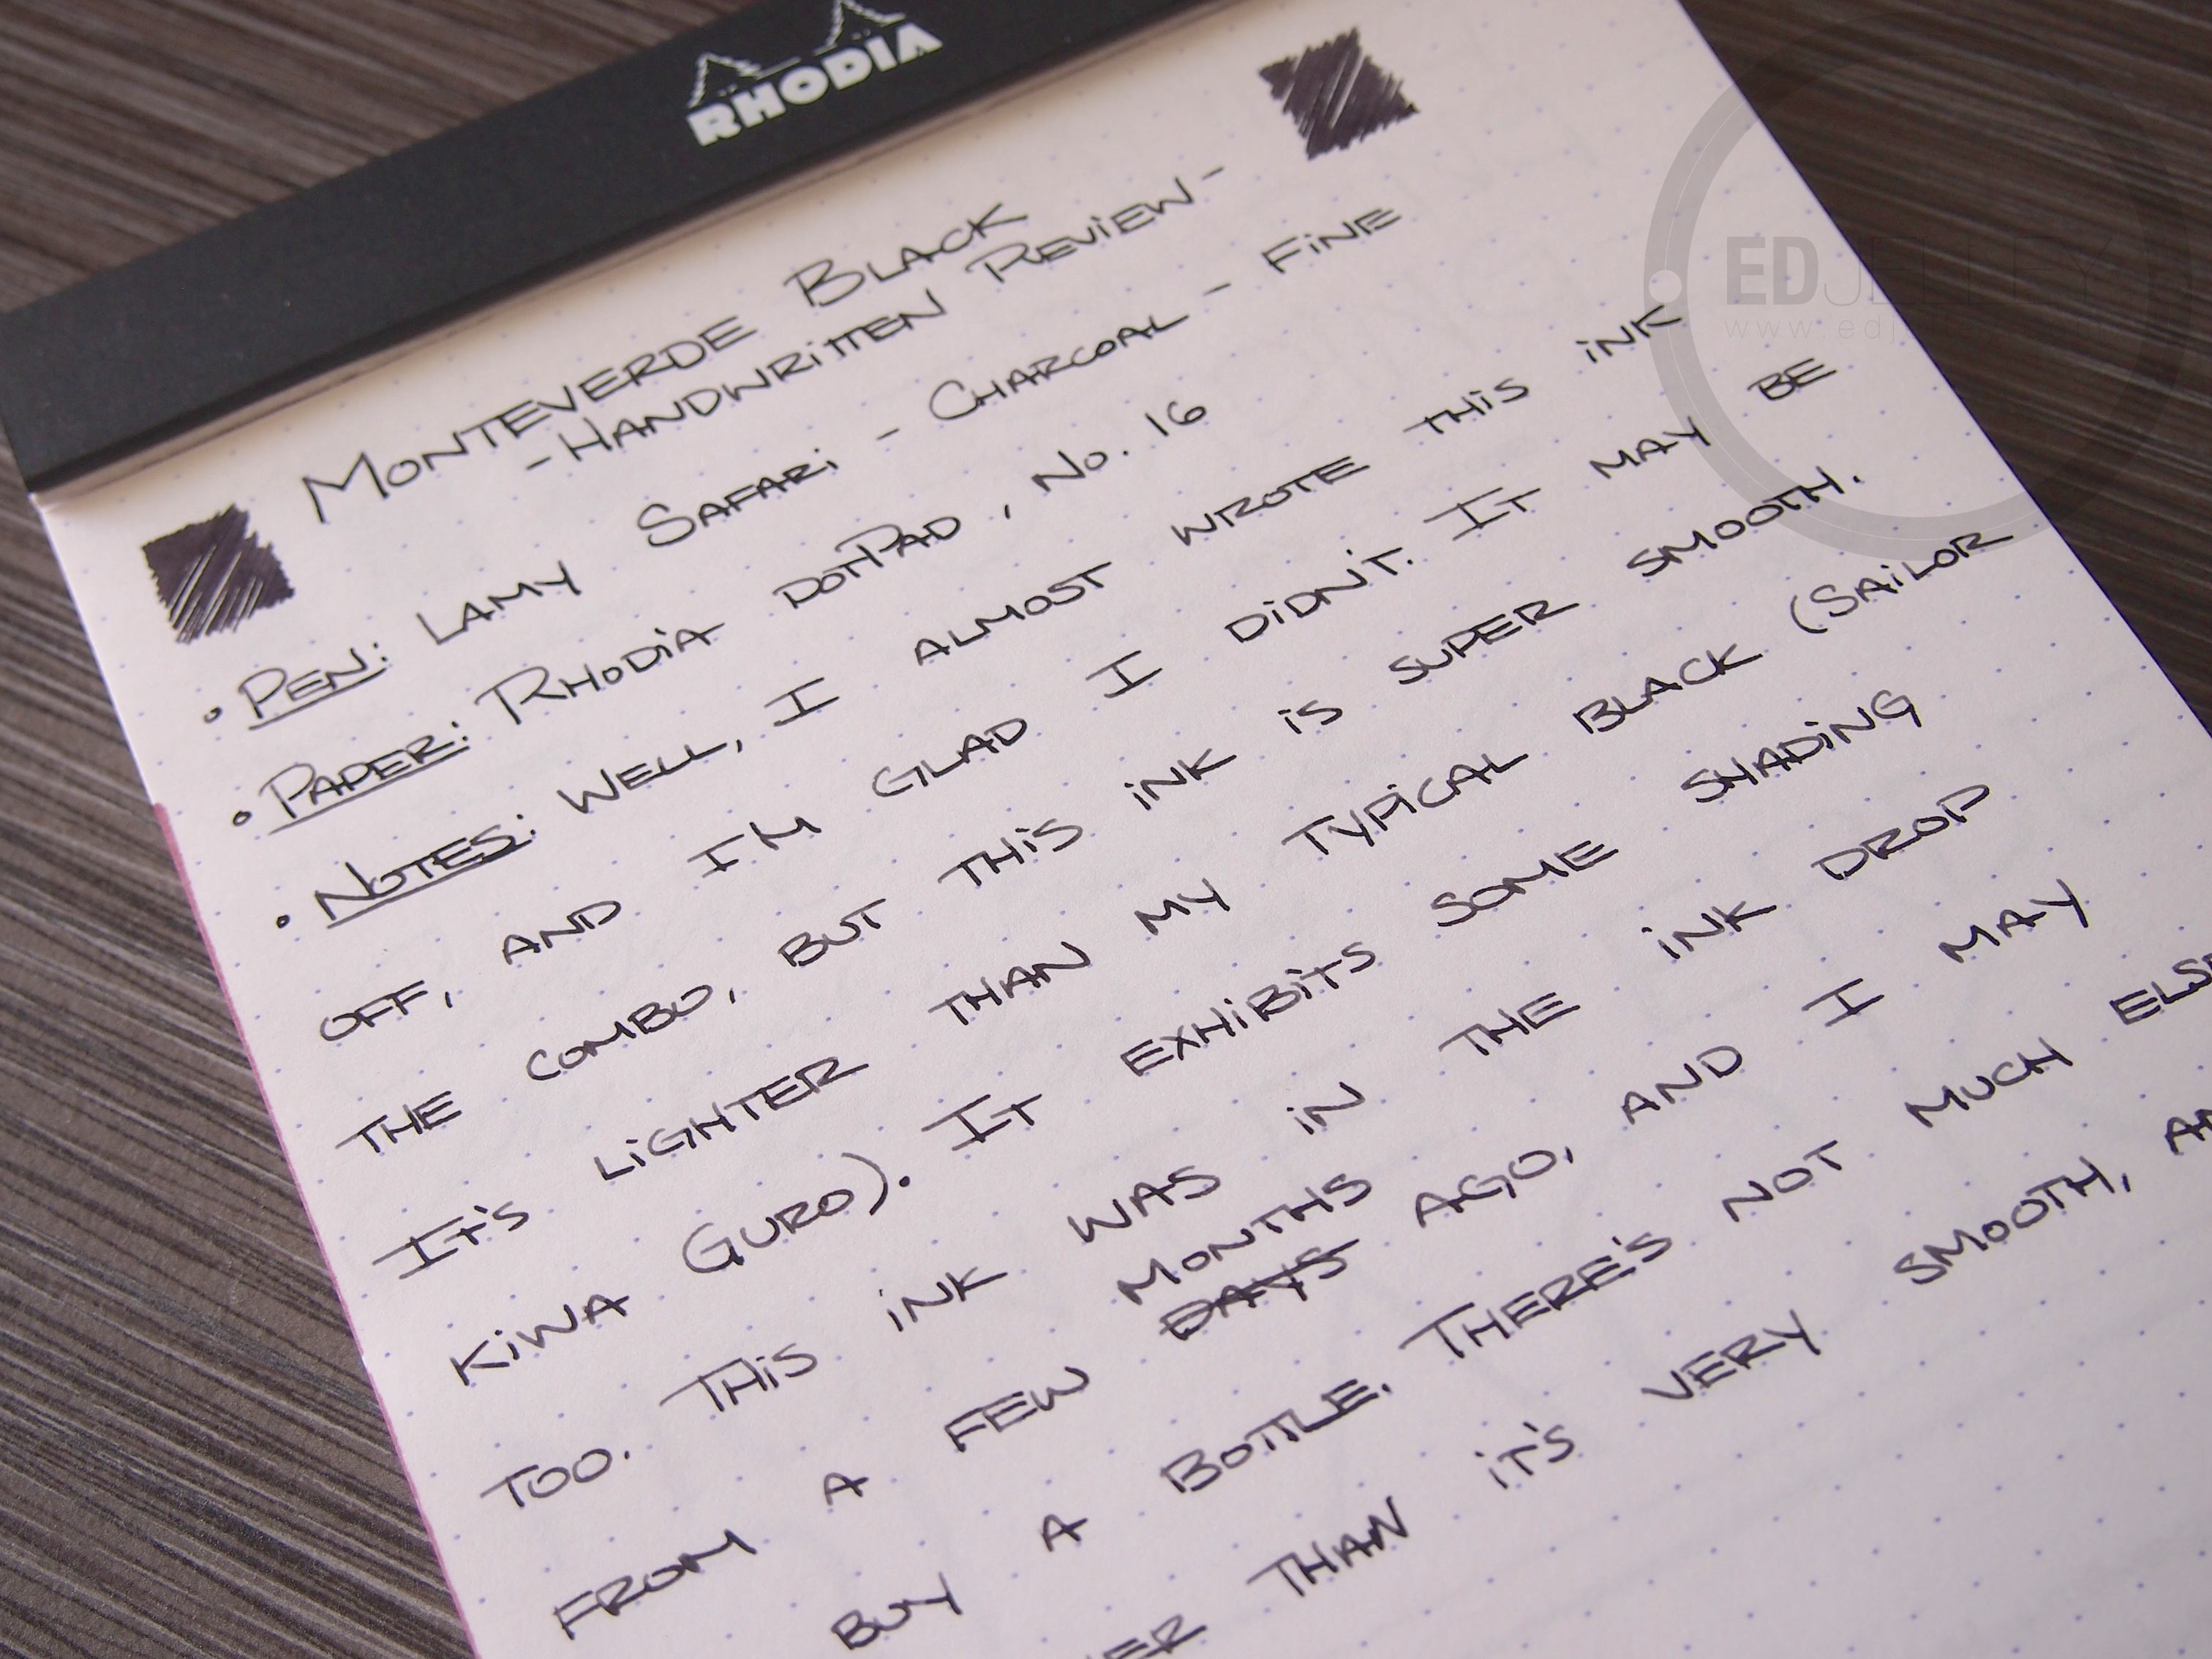 RHODIA
MONTEVERDE BLACK
- HANDWRITTEN REVIEW -
• PEN: LAMY SAFARI - CHARCOAL - FINE
• PAPER: RHODIA DOTPAD, No. 16
• NOTES: WELL, I ALMOST WROTE THIS INK
OFF, AND I'M GLAD I DIDN'T. IT MAY BE
THE COMBO, BUT THIS INK IS SUPER SMOOTH.
IT'S LIGHTER THAN MY TYPICAL BLACK (SAILOR
KIWA GURO). IT EXHIBITS SOME SHADING
TOO. THIS INK WAS IN THE INK DROP
FROM A FEW MONTHS DAYS AGO, AND I MAY
BUY A BOTTLE. THERE'S NOT MUCH ELSE
THAN IT'S VERY SMOOTH,
EDJELLEY